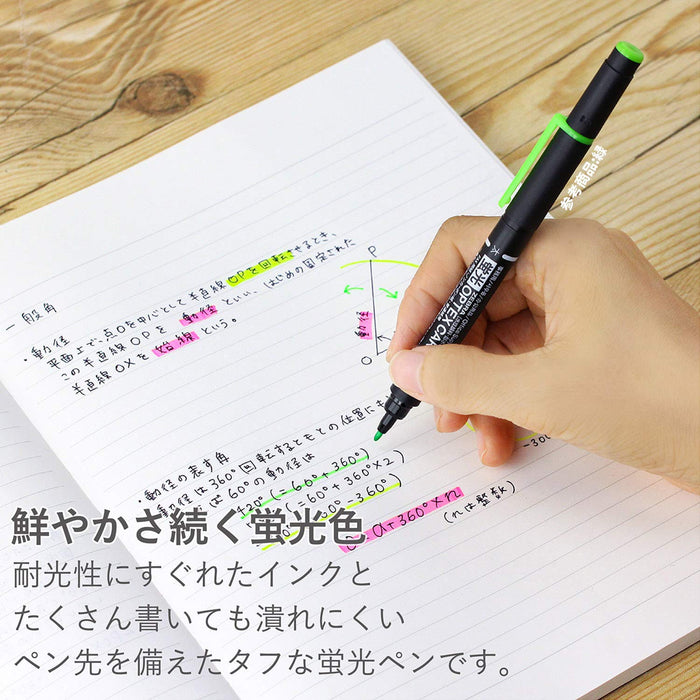 一般角
・動径
平面上で、点Oを中心として半直線OPを回転させるとき、
この半直線OPを 動径 といい、はじめの固定された
半直線OXを 始線 という。
P
動径
O
・動径の表す角
動径は360°回転するともとの位置にも
ば 60°の動径は
420°(=60°+360°)
(=60°+360°×2)
60°-360°)
-300
α+360°×n
(nは整数)
参考商品:緑
太
蛍光 OPTEX CAR
ZEBRA
鮮やかさ続く蛍光色
耐光性にすぐれたインクと
たくさん書いても潰れにくい
ペン先を備えたタフな蛍光ペンです。